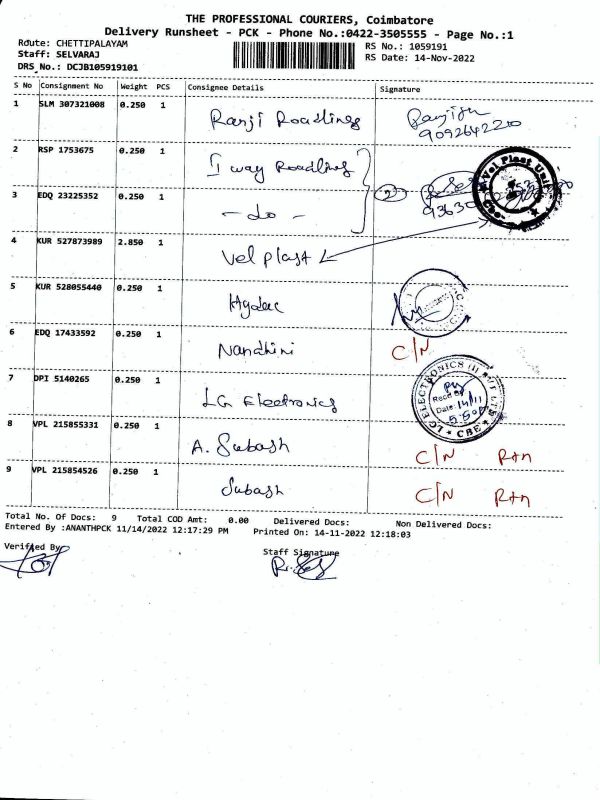 THE PROFESSIONAL COURIERS, Coimbatore
Delivery Runsheet - PCK - Phone No.:0422-3505555 - Page No.:1
Route: CHETTIPALAYAM
Staff: SELVARAJ
DRS No.: DCJB105919101
RS No.: 1059191
RS Date: 14-Nov-2022
S No Consignment No Weight PCS Consignee Details Signature
1 SLM 307321008 0.250 1 Ranji Roadlines Ranjith
9092642210
2 RSP 1753675 0.250 1 I way Roadlines
3 EDQ 23225352 0.250 1 - do - 2
Vel Plast
4 KUR 527873989 2.850 1 Vel plast
5 KUR 528055440 0.250 1 Hydac
6 EDQ 17433592 0.250 1 Nandhini C/N
7 DPI 5140265 0.250 1 LG Electronics
LG ELECTRONICS (I) PVT LTD
Recd By
Date: 14/11
5.50
* CBE *
8 VPL 215855331 0.250 1 A. Subash C/N Rtn
9 VPL 215854526 0.250 1 Subash C/N Rtn
Total No. Of Docs: 9 Total COD Amt: 0.00 Delivered Docs: Non Delivered Docs:
Entered By :ANANTHPCK 11/14/2022 12:17:29 PM Printed On: 14-11-2022 12:18:03
Verified By
Staff Signature